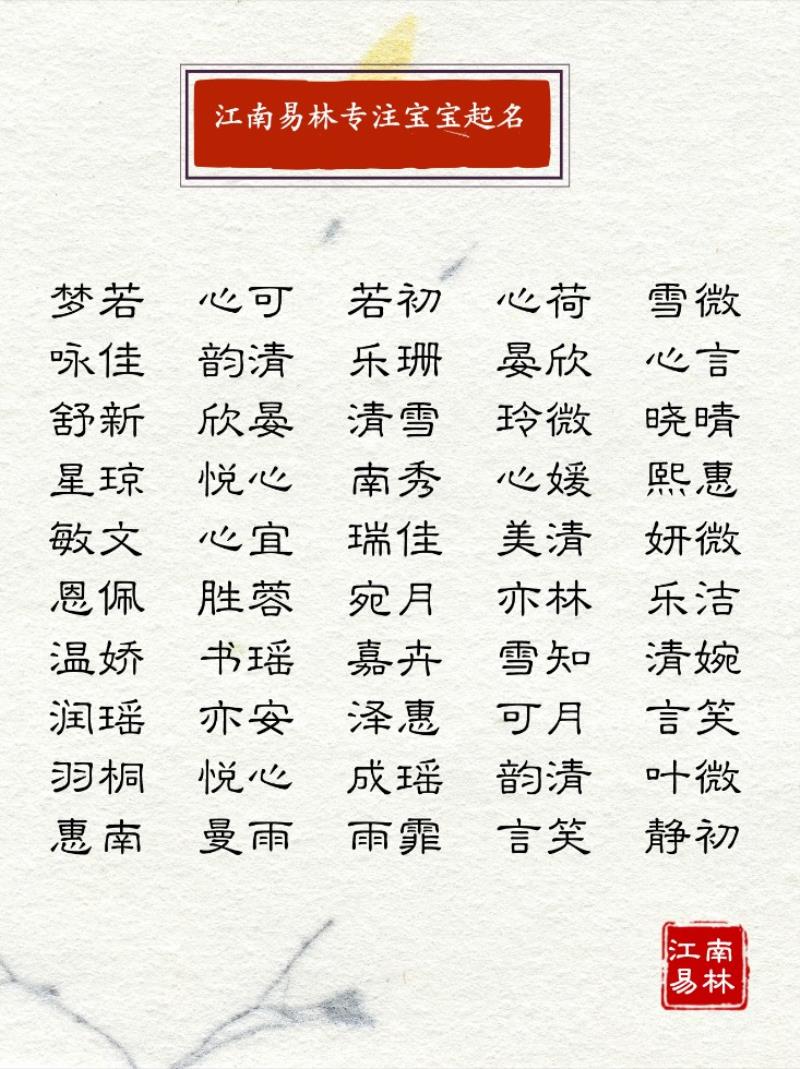 江南易林专注宝宝起名
梦若 心可 若初 心荷 雪微
咏佳 韵清 乐珊 晏欣 心言
舒新 欣晏 清雪 玲微 晓晴
星琼 悦心 南秀 心媛 熙惠
敏文 心宜 瑞佳 美清 妍微
恩佩 胜蓉 宛月 亦林 乐洁
温娇 书瑶 嘉卉 雪知 清婉
润瑶 亦安 泽惠 可月 言笑
羽桐 悦心 成瑶 韵清 叶微
惠南 曼雨 雨霏 言笑 静初
江南
易林